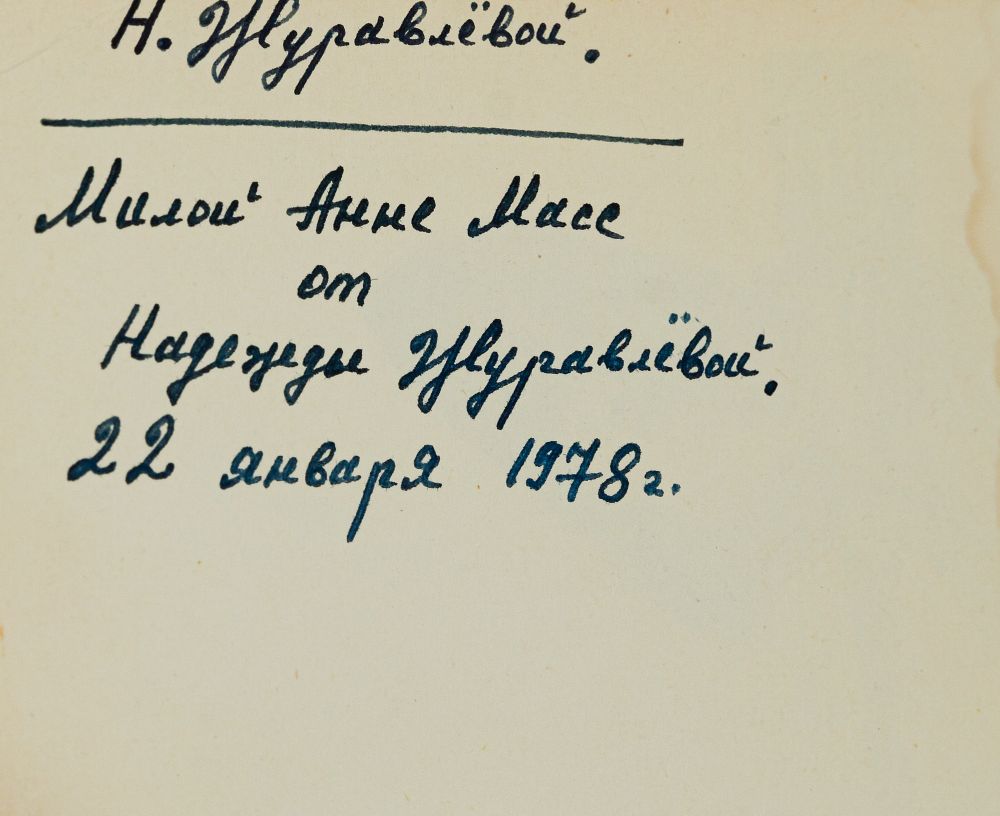 Н. Журавлёвой.
Милой Анне Масс
от
Надежды Журавлёвой.
22 января 1978г.